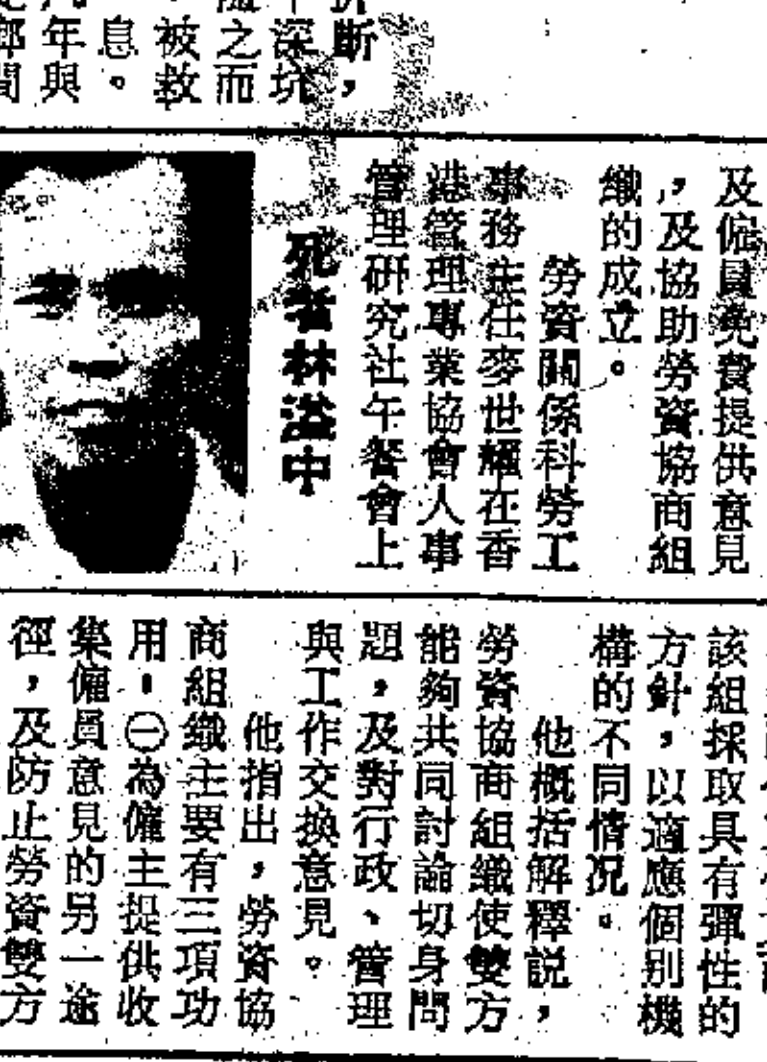 折斷，
深坑
之而
被救
息。
年與
郎間
及僱員免費提供意見
，及協助勞資協商組
織的成立。
勞資關係科勞工
事務主任麥世耀在香
港管理專業協會人事
管理研究社午餐會上
死者林溢中
該組採取具有彈性的
方針，以適應個別機
構的不同情况。
他概括解釋説，
勞資協商組織使雙方
能夠共同討論切身問
題，及對行政、管理
與工作交換意見。
他指出，勞資協
商組織主要有三項功
用：㊀為僱主提供收
集僱員意見的另一途
徑，及防止勞資雙方